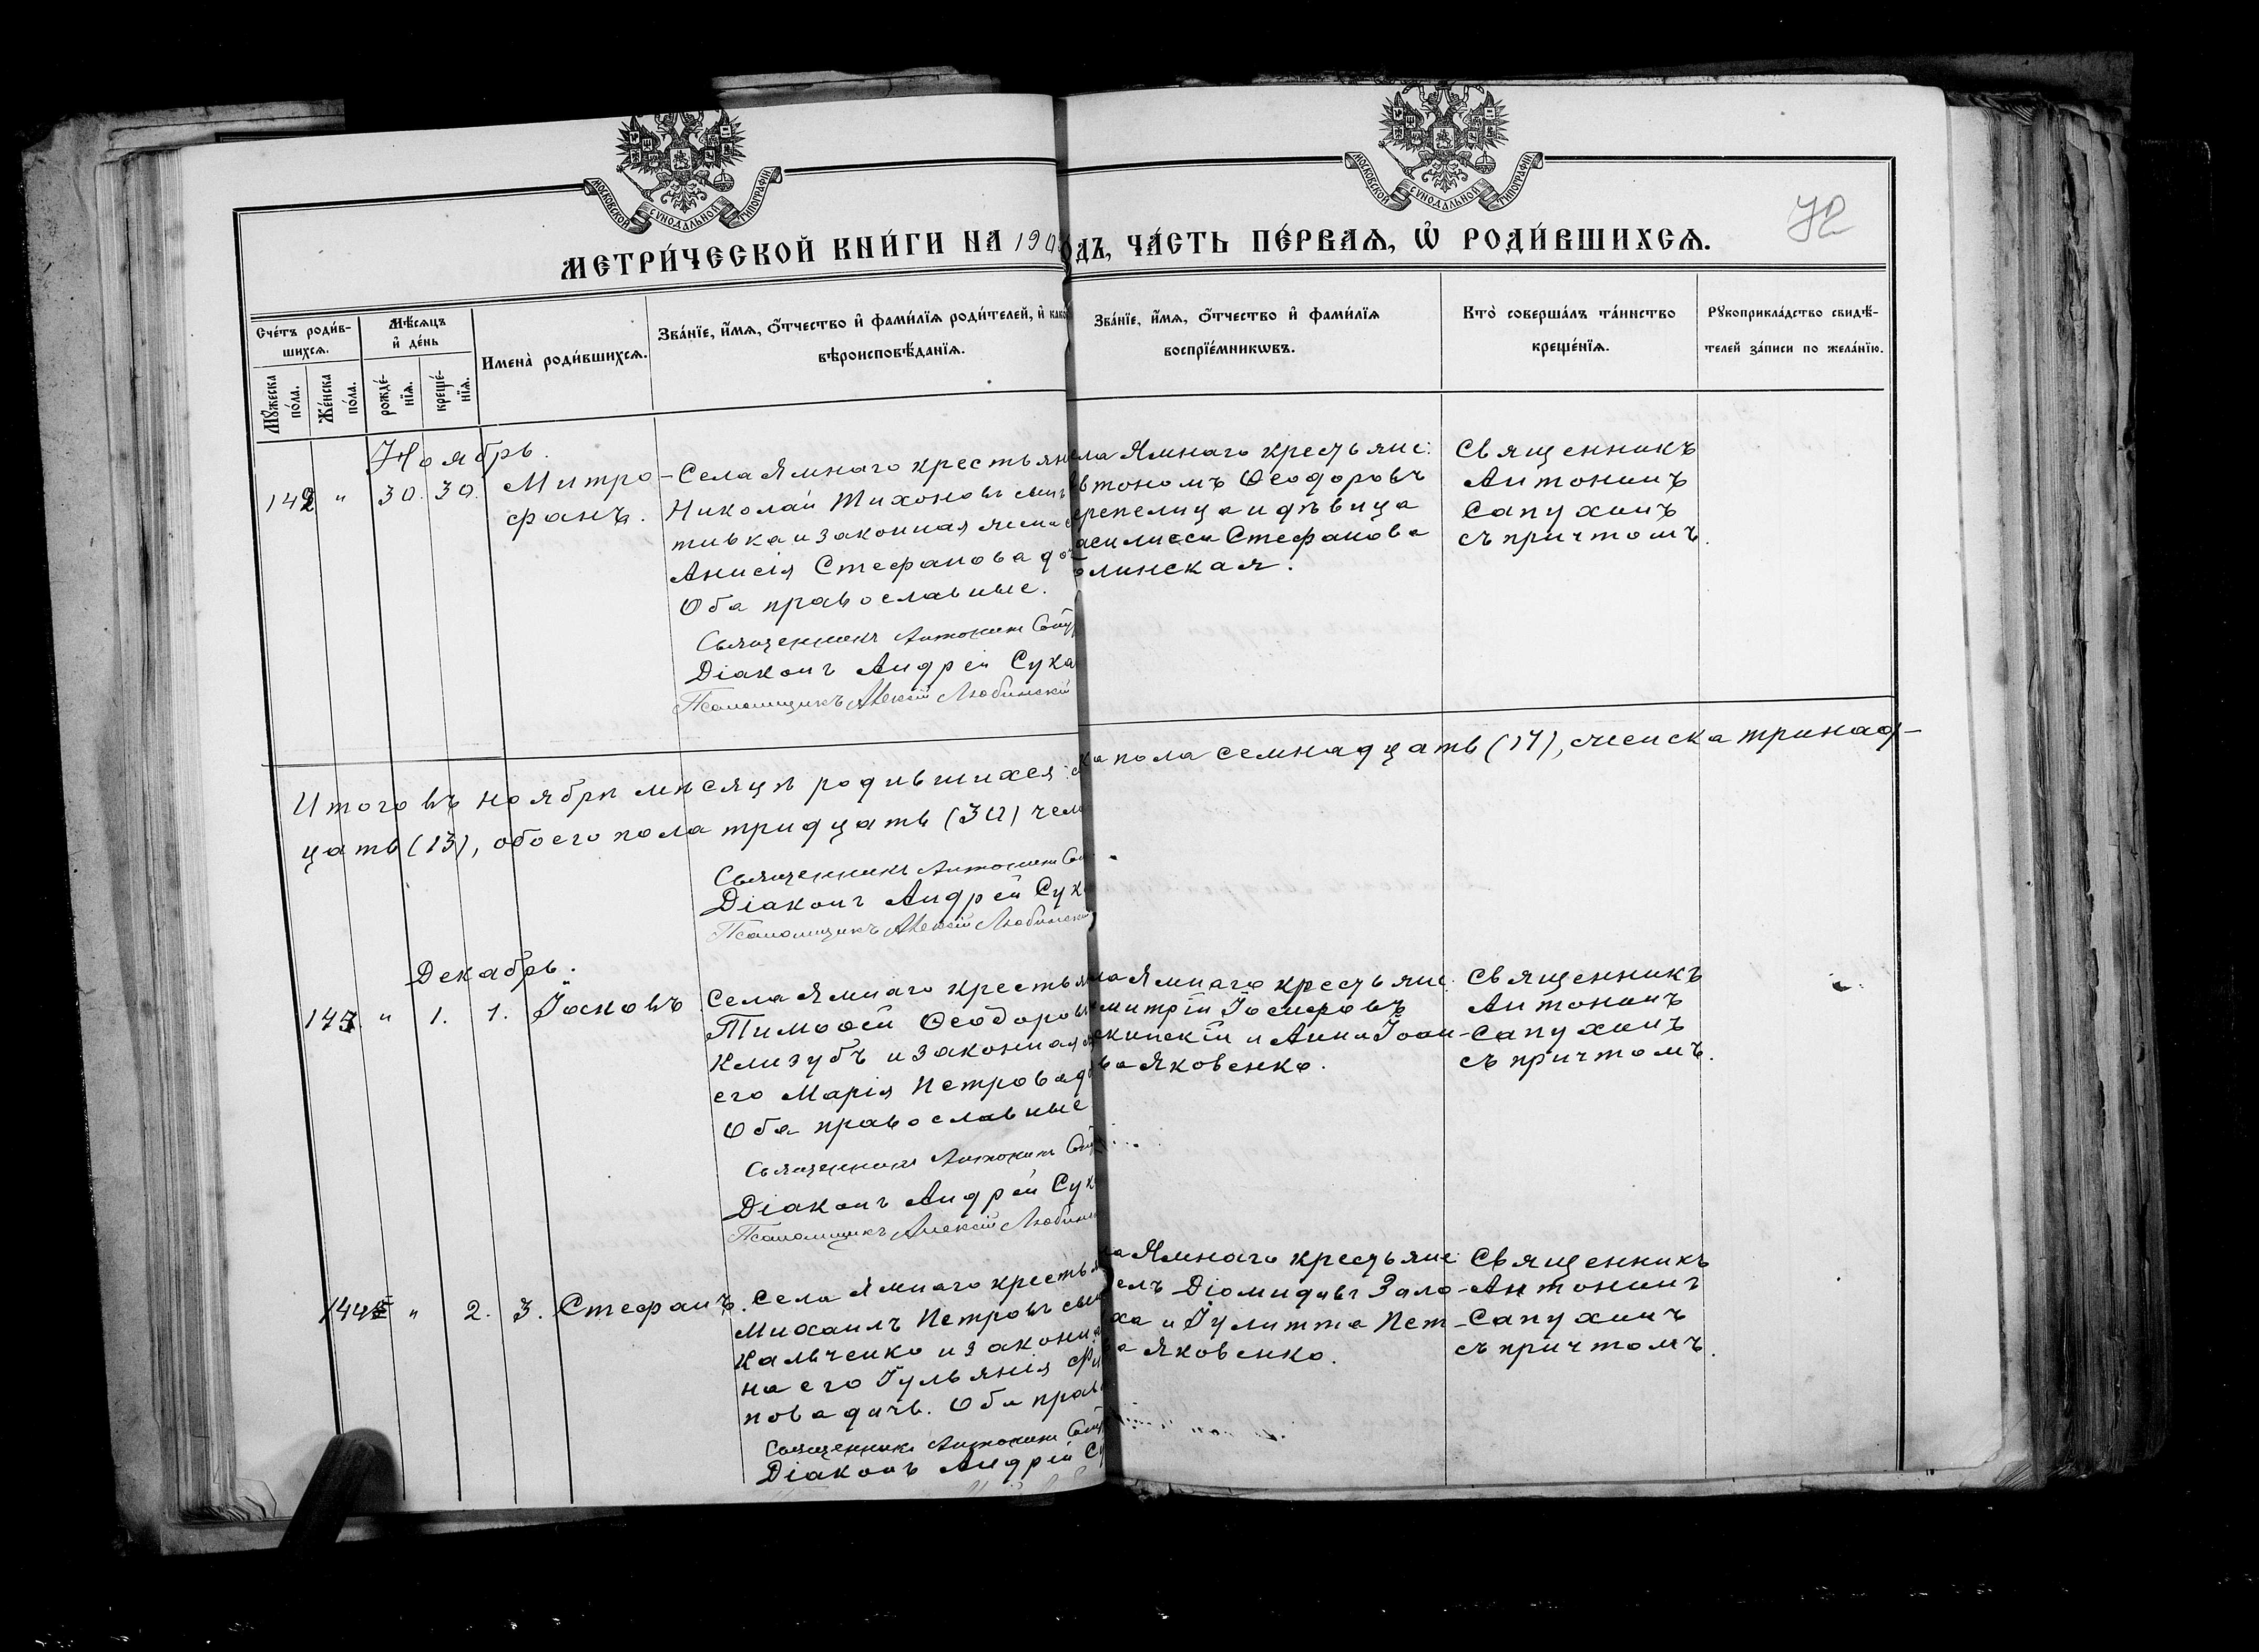 МОСКОВСКОЙ СѴНОДАЛЬНОЙ ТИПОГРАФІИ
МОСКОВСКОЙ СѴНОДАЛЬНОЙ ТИПОГРАФІИ
72
МЕТРИ́ЧЕСКОЙ КНИ́ГИ НА 190
ОДЪ, ЧА́СТЬ ПЕ́РВАѦ, Ѡ҆ РОДИ́ВШИХСѦ.
Сче́тъ роди́в-
шихсѧ.
Мꙋ́жеска по́ла.
Же́нска по́ла.
Мѣ́сѧцъ
и҆ де́нь
рожде́-
нїѧ.
креще́-
нїѧ.
Имена̀ роди́вшихсѧ.
Зва́нїе, и҆́мѧ, о҆́тчество и҆ фами́лїѧ роди́телей, и҆ како
вѣроисповѣ́данїѧ.
Зва́нїе, и҆́мѧ, о҆́тчество и҆ фами́лїѧ
воспрїе́мникѡвъ.
Кто̀ соверша́лъ та́инство
креще́нїѧ.
Рꙋкоприкла́дство свидѣ́-
телей за́писи по жела́нїю.
Ноябрь.
142 " 30. 30. Митро-
фанъ.
Села Ямнаго крестьян
Николай Тихоновъ сынъ
тивка и законная жена е
Анисія Стефанова до
Оба православные.
Священникъ Антонинъ Сапу
Діаконъ Андрей Сука
Псаломщикъ Алексій Любинскій
ела Ямнаго крестьяне:
втономъ Ѳеодоровъ
ерепелица и дѣвица
асилисса Стефанова
олинская.
Священникъ
Антонинъ
Сапухинъ
съ причтомъ.
Итого въ ноябрѣ мѣсяцѣ родившихся:
ка пола семнадцать (17), женска тринад-
цать (13), обоего пола тридцать (30) чел
Священникъ Антонинъ Сап
Діаконъ Андрей Сук
Псаломщикъ Алексій Любинскій
Декабрь.
143 " 1. 1. Іаковъ
Села Ямнаго крестья
Тимоѳей Ѳеодоров
Клизубъ и законная
его Марія Петрова д
Оба православные
Священникъ Антонинъ Сап
Діаконъ Андрей Сук
Псаломщикъ Алексій Любинс
ла Ямнаго крестьяне:
митрій Іосифовъ
скинскій и Анна Іоан-
ва Яковенко.
Священникъ
Антонинъ
Сапухинъ
съ причтомъ.
144 " 2. 3. Стефанъ.
Села Ямнаго крестья
Михаилъ Петровъ сын
Кальченко и законн
на его Іульянія Фи
пова дочь. Оба прав
Священникъ Антонинъ Сап
Діаконъ Андрей С
ла Ямнаго крестьяне:
елъ Діомидовъ Зало-
ха и Іулитта Пет-
ва Яковенко.
Священникъ
Антонинъ
Сапухинъ
съ причтомъ.